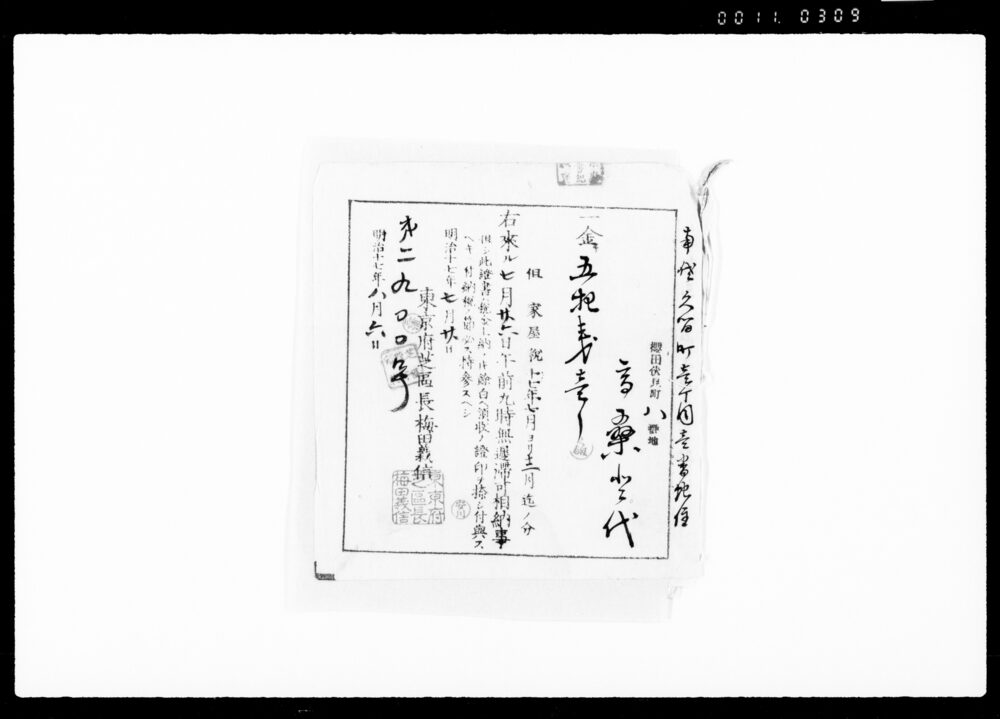 0011. 0309
南佐久間町壱丁目壱番地住
櫻田伏見町八番地
高桑 代
一金五拾 壱
但家屋税十七年七月ヨリ十二月迄ノ分
右來ル七月廿六日午前九時無遲滯可相納事
但シ此證書ハ税金上納ノ上餘白ヘ領收ノ證印ヲ捺シ付與スヘキニ付納税ノ節必ス持參スヘシ
明治十七年七月廿日
東京府芝區長梅田義信
東京府芝區長梅田義信
第二九〇〇号
明治十七年八月六日